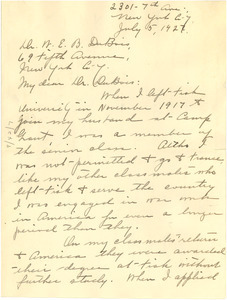 2301-7th Ave.
New York City.
July 5, 1927.
Dr. W. E. B. DuBois,
69 Fifth Avenue,
New York City.
My dear Dr. DuBois:
When I left Fisk
University in November 1917 to
join my husband at Camp
I was a member of
the senior class. Altho I
was not permitted to go to France
like my other class mates who
left Fisk to serve the country
I was engaged in war work
in America for even a longer
period than they.
On my class mates' return
to America they were awarded
their degree at Fisk without
further study. When I applied